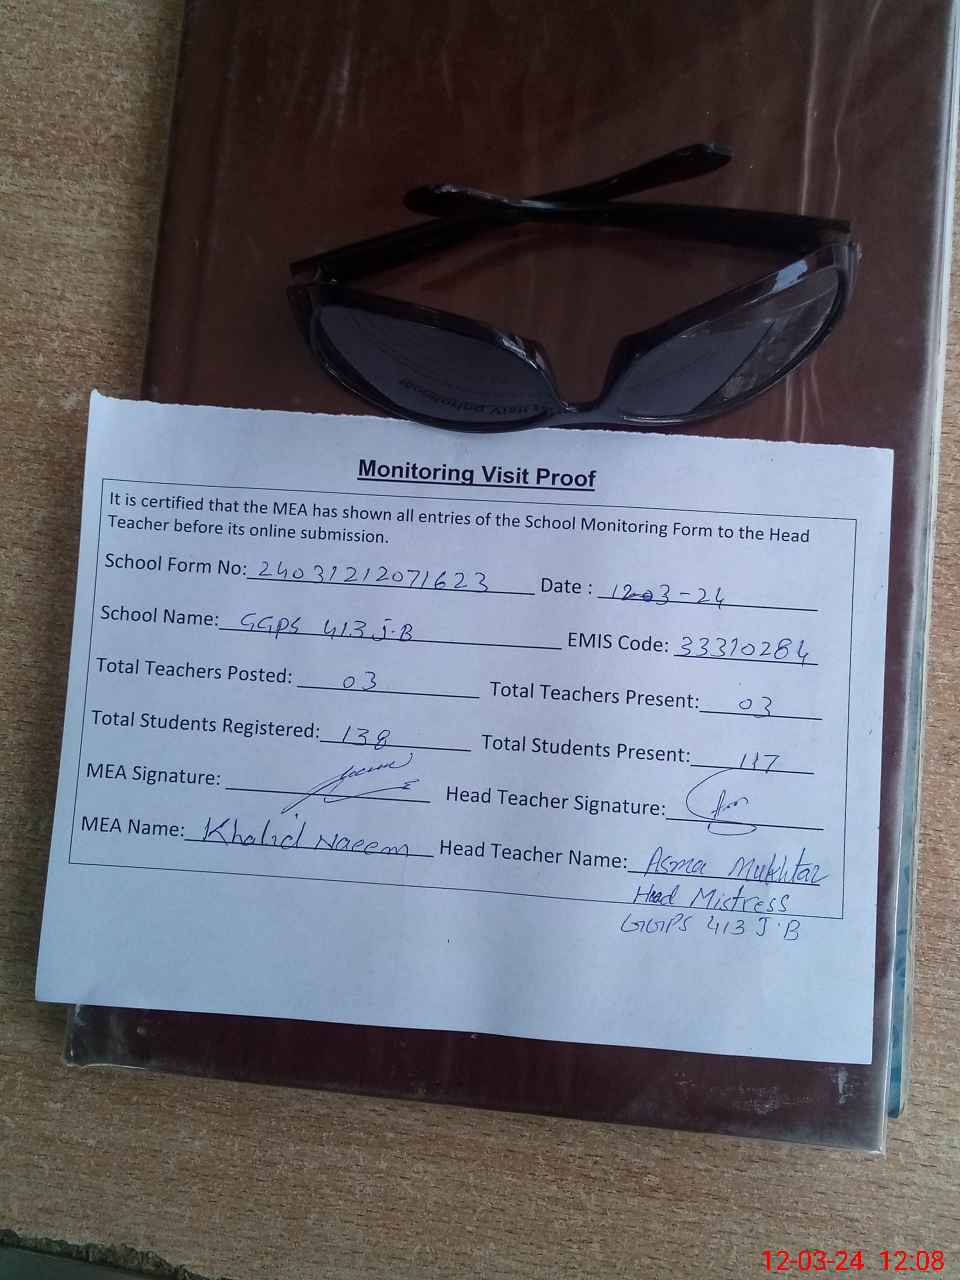 Monitoring Visit Proof
It is certified that the MEA has shown all entries of the School Monitoring Form to the Head
Teacher before its online submission.
School Form No: 24031212071623 Date : 1203-24
School Name: GGPS 413 J.B EMIS Code: 33310284
Total Teachers Posted: 03 Total Teachers Present: 03
Total Students Registered: 138 Total Students Present: 117
MEA Signature: Head Teacher Signature:
MEA Name: Khalid Naeem Head Teacher Name: Asma Mukhtar
Head Mistress
GGPS 413 J.B
12-03-24 12:08